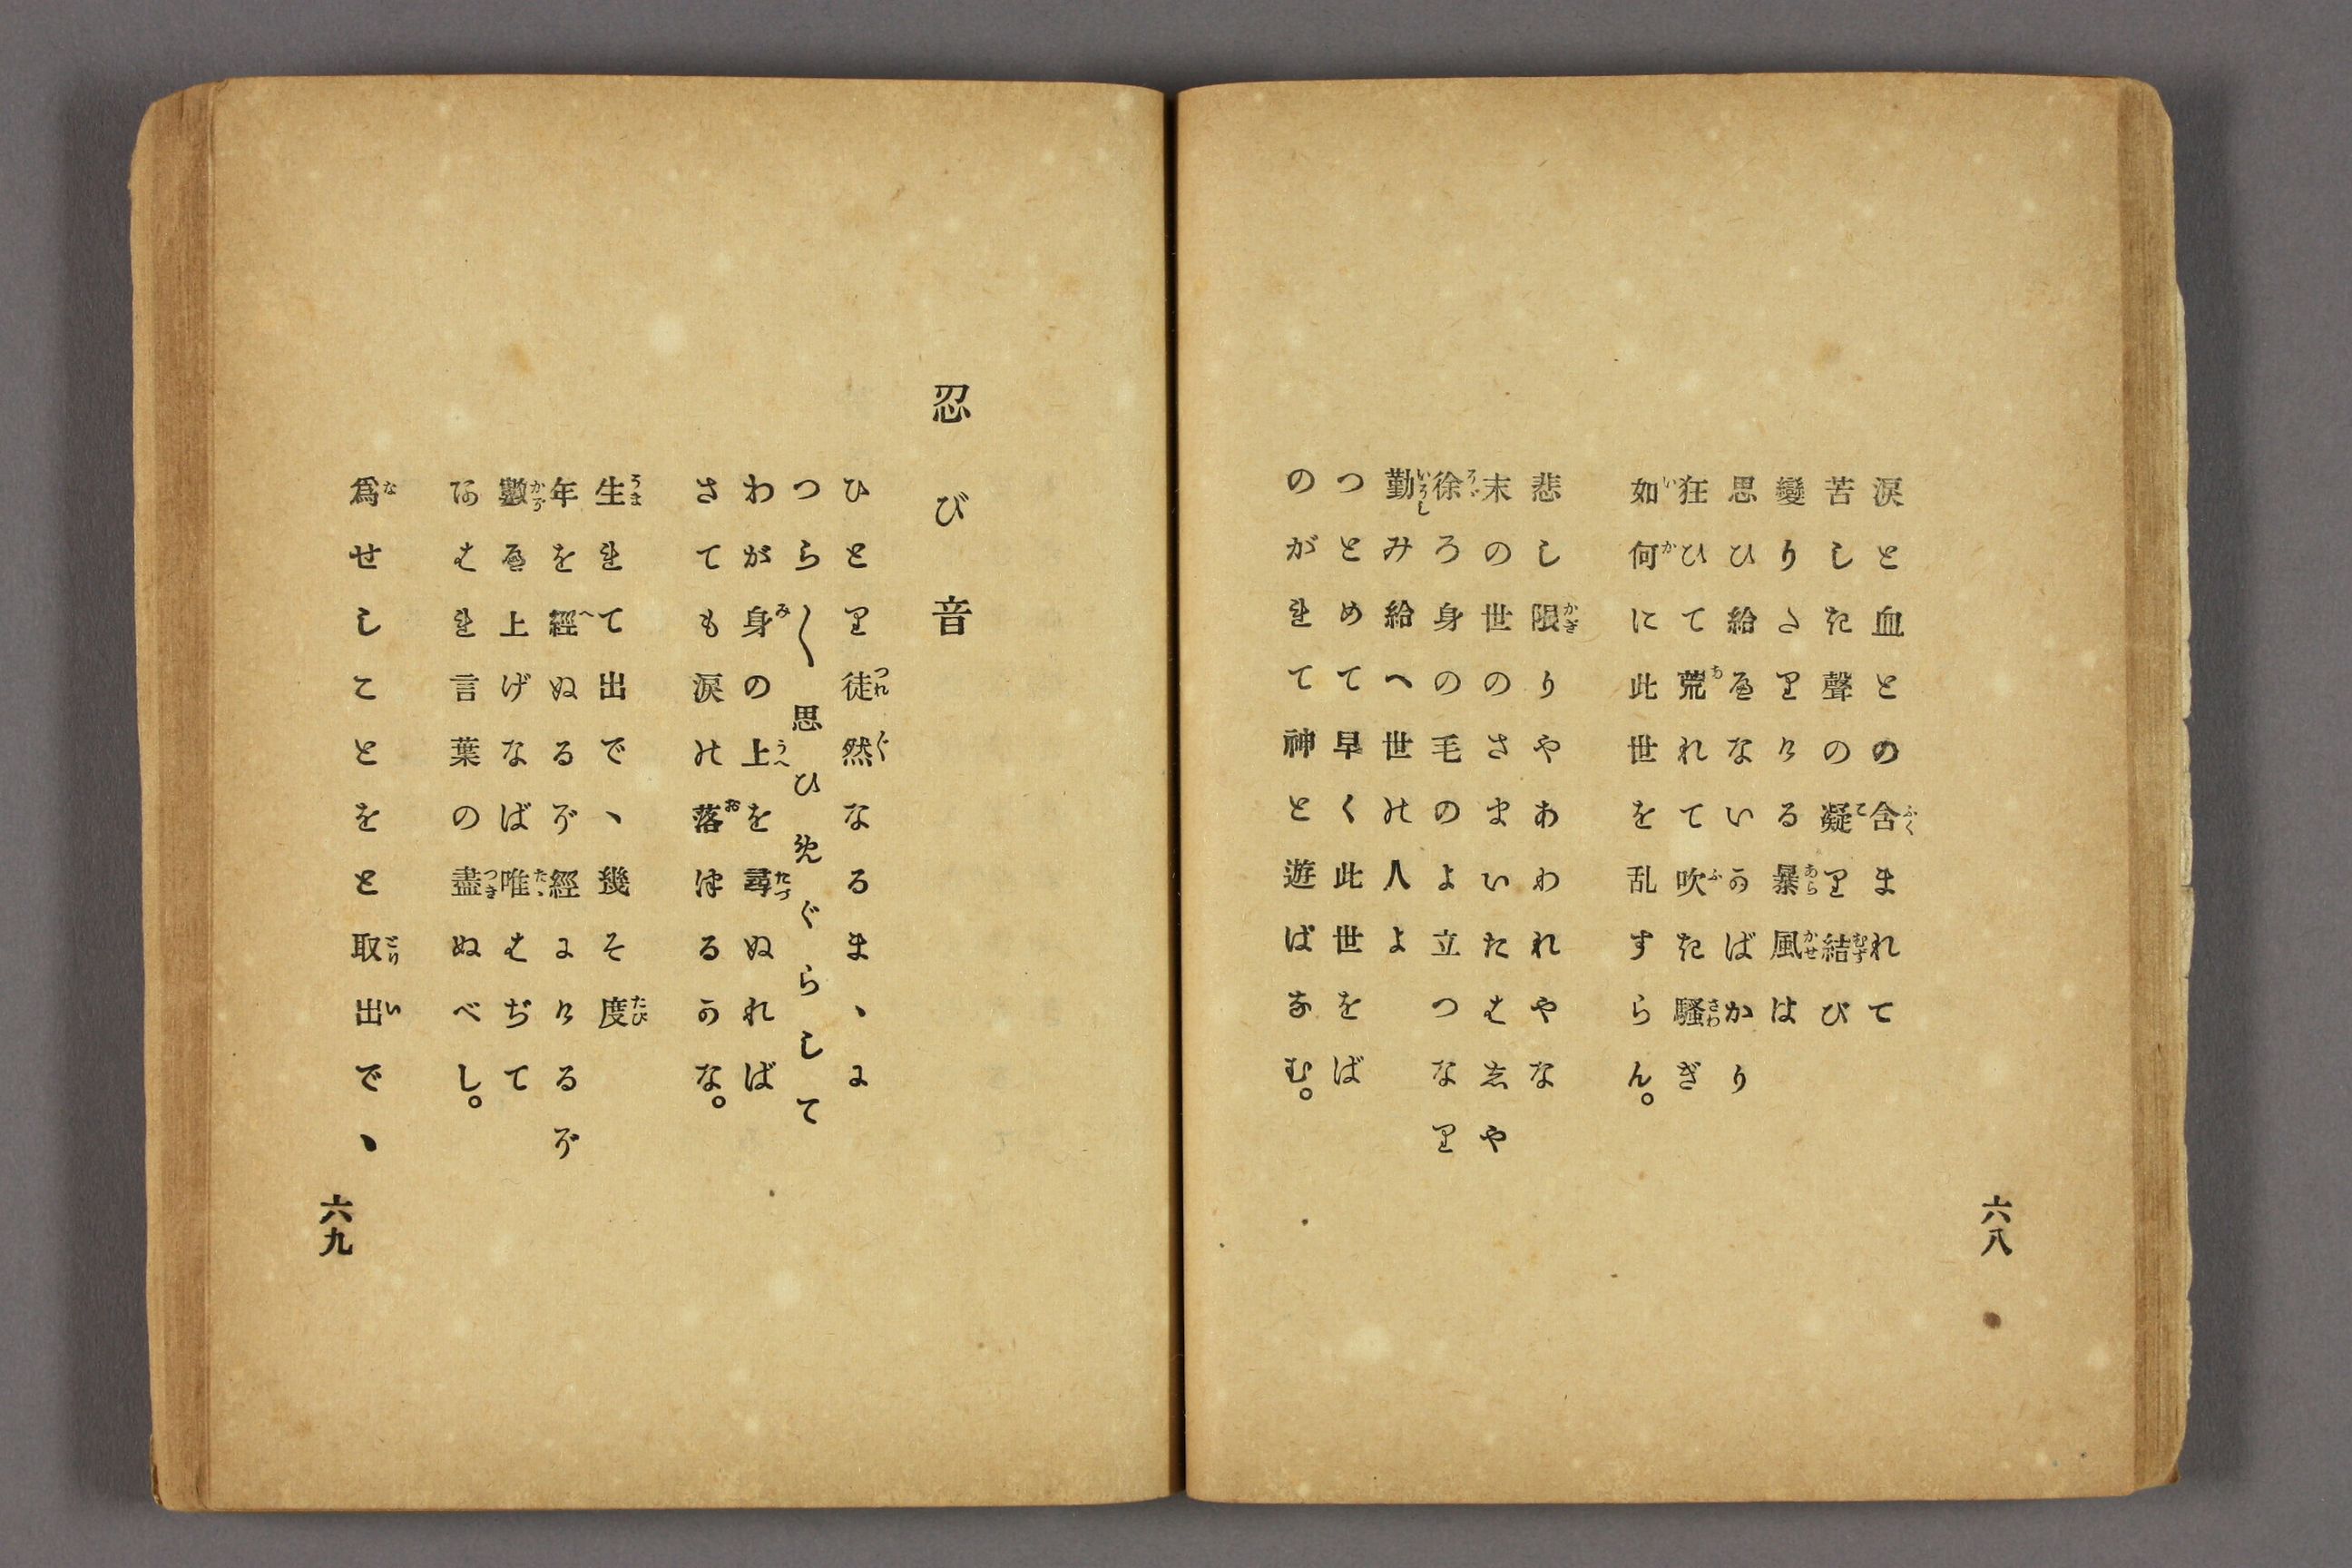 涙と血との含まれて
苦しき聲の凝り結び
變りたりける暴風は
思ひ給へないかばかり
狂ひて荒れて吹き騒ぎ
如何に此世を乱すらん。
悲し限りやあわれやな
末の世のさまいたはしや
徐ろ身の毛のよ立つなり
勤み給へ世の人よ
つとめて早く此世をば
のがれて神と遊ばなむ。
六八
忍び音
ひとり徒然なるまゝに
つら〱思ひめぐらして
わが身の上を尋ぬれば
さても涙の落つるかな。
生れて出でゝ幾そ度
年を經ぬるぞ經にけるぞ
數へ上げなば唯はぢて
あはれ言葉の盡ぬべし。
爲せしことをと取出でゝ
六九